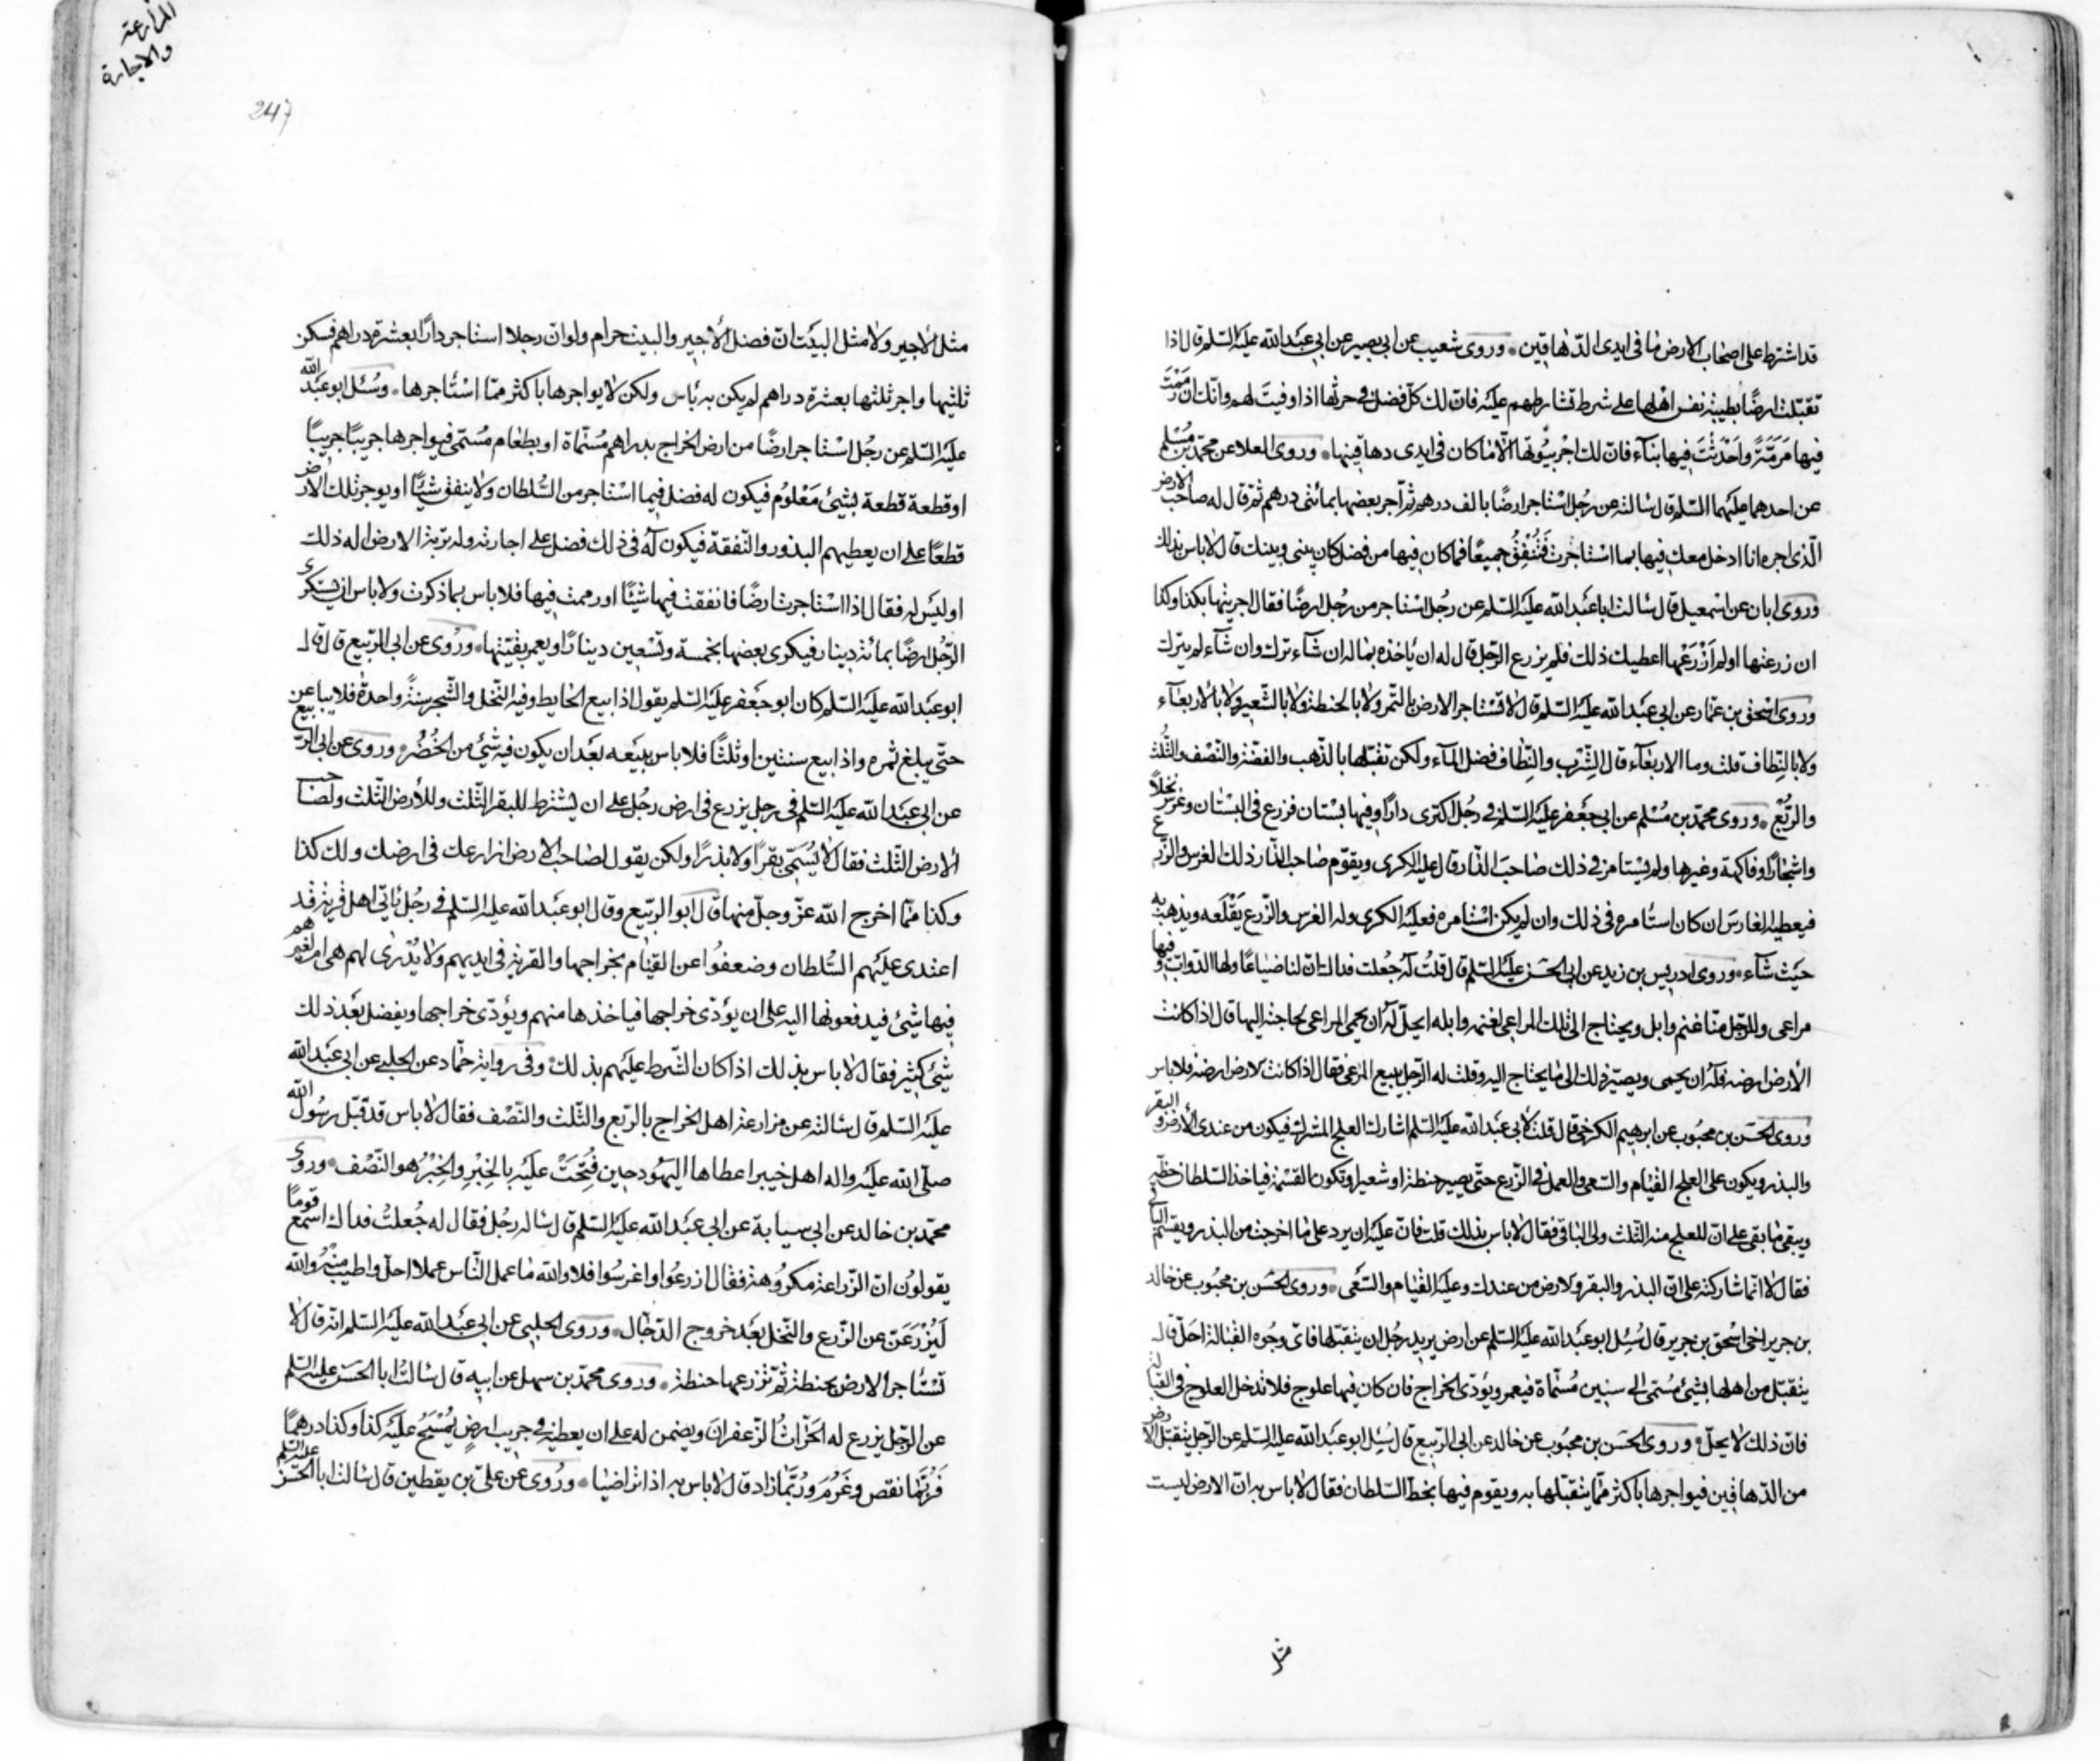 قد اشترط على اصحاب الارض ما فى ايدى الدهاقين وروى شعيب عن ابى بصير عن ابى عبد الله عليه السلم قال اذا
تقبّلت ارضًا بطيبة نفس اهلها على شرط تشارطهم عليه فان لك كلّ فضل فى حرثها اذا وفيت لهم وانّك ان رَمَمْتَ
فيها مَرَمَّةً واَحْدَثْتَ فيها بنآء فان لك اجر بيُوتها الّا ما كان فى ايدى دهاقينها وروى العلا عن محمد بن مُسْلم
عن احدهما عليهما السلم قال سالته عن رجُل استاجر ارضًا بالف درهم ثم آجر بعضها بمائتى درهم ثم قال له صاحب الارض
الّذى اجره انا ادخل معك فيها بما استاجرت فَنُنْفِقُ جميعًا فما كان فيها من فضل كان بينى وبينك قال لاباس بذلك
وروى ابان عن اسمعيل قال سالت اباعبد الله عليه السلم عن رجُل استاجر من رجُل ارضًا فقال اجرينها بكذا وكذا
ان زرعتها او لم اَزْرَعْها اعطيك ذلك فلم يزرع الرّجل قال له ان ياخذه بماله ان شآء ترك وان شآء لم يترك
وروى اسحق بن عمّار عن ابى عبد الله عليه السلم قال لا تستاجر الارض بالتمر ولا بالحنطة ولا بالشعير ولا بالاربعآء
ولا بالنِّطاف قلت وما الاربعآء قال الشِّرْب والنِّطاف فضل المآء ولكن تقبّلها بالذّهب والفضّة والنّصْف والثُّلث
والرُّبْع وروى محمد بن مُسْلم عن ابى جعفر عليه السلم فى رجُل اكترى دارًا وفيها بستان فزرع فى البستان وغرس نخلًا
واشجارًا وفاكهة وغيرها ولم يستامر فى ذلك صاحب الدّار قال عليه الكرى ويقوّم صاحب الدّار ذلك الغرس والزّرع
فيعطيه الغارس ان كان استامره فى ذلك وان لم يكن استامره فعليه الكرى وله الغرس والزّرع يَقْلَعه ويذهب به
حيث شآء وروى ادريس بن زيد عن ابى الحسن عليه السلم قال قلتُ له جُعلت فداك ان لنا ضياعًا ولها الدّواب وفيها
مراعى وللرّجل منّا غنم وابل ويحتاج الى تلك المراعى لغنمه وابله ايحلّ له ان يحمى المراعى لحاجته اليها قال اذا كانت
الأرض ارضه فله ان يحمى ويصيّر ذلك الى ما يحتاج اليه وقلت له الرّجل يبيع المراعى فقال اذا كانت لارض ارضه فلا باس
وروى الحسن بن محبُوب عن ابرهيم الكرخى قال قلت لابى عبد الله عليه السلم اشارك العلج المشرك فيكون من عندى الأرض والبقر
والبذر ويكون على العلج القيام والسّعى والعمل فى الزّرع حتّى يصير حنطة او شعيرا وتكون القسمة فياخذ السّلطان حظّه
ويبقى ما بقى على ان للعلج منه الثّلث ولى الباقى فقال لاباس بذلك قلت فان عليه ان يرد على ما اخرجت من البذر ويقسم الباقى
فقال لا انّما شاركته على ان البذر والبقر والارض من عندك وعليه القيام والسّعى وروى الحسن بن محبُوب عن خالد
بن جرير اخى اسحق بن جرير قال سُئِل ابوعبد الله عليه السلم عن ارض يريد رجُل ان يتقبّلها فاىّ وجُوه القبالة احلّ قال
يتقبّل من اهلها بشئ مُسَمّى الى سنين مُسمّاة فيعمر ويؤدّى الخراج فان كان فيها علوج فلا تدخل العلوج فى القبالة
فان ذلك لا يحلّ وروى الحسن بن محبُوب عن خالد عن ابى الرّبيع قال سُئِل ابوعبد الله عليه السلم عن الرّجل يتقبّل الارض
من الدّهاقين فيواجرها باكثر ممّا يتقبّلها به ويقوم فيها بحظ السّلطان فقال لاباس به ان الارض ليست
مثل
المزارعة
والاجارة
247
مثل الأجير ولا مثل البيت ان فضل الأجير والبيت حرام ولو ان رجلا استاجر دارًا بعشرة دراهم فسكن
ثلثيها واجر ثلثها بعشرة دراهم لم يكن به باس ولكن لا يواجرها باكثر ممّا استأجرها وسُئِل ابوعبد الله
عليه السلم عن رجُل استاجر ارضًا من ارض الخراج بدراهم مُسَمّاة او بطعام مُسَمّى فيواجرها جريبًا جريبًا
او قطعة قطعة بشئ مَعْلُوم فيكون له فضل فيما استاجر من السُّلطان ولا ينفق شيئًا او يوجر تلك الارض
قطعًا على ان يعطيهم البذور والنّفقة فيكون له فى ذلك فضل على اجارته وله تربة الارض اله ذلك
او ليس له فقال اذا استاجرت ارضًا فانفقت فيها شيئًا او رممت فيها فلا باس بما ذكرت ولا باس ان يستكرى
الرّجُل ارضًا بمائة دينار فيكرى بعضها بخمسة وتسعين دينارًا ويعمر بقيّتها وروى عن ابى الرّبيع قال قال
ابوعبد الله عليه السلم كان ابوجعفر عليه السلم يقول اذا بيع الحايط وفيه النّخل والشّجر سنةً واحدةً فلا يباعن
حتّى يبلغ ثمره واذا بيع سنتين او ثلثًا فلا باس ببيعه بعد ان يكون فيه شئ من الخُضُر وروى عن ابى الرّبيع
عن ابى عبد الله عليه السلم فى رجل يزرع فى ارض رجُل على ان يشترط للبقر الثّلث وللأرض الثّلث ولصاحب
الأرض الثّلث فقال لا يُسَمّى بقرًا ولا بذرًا ولكن يقول لصاحب الارض ازارعك فى ارضك ولك كذا
وكذا ممّا اخرج الله عزّ وجلّ منها قال ابو الرّبيع وقال ابوعبد الله عليه السلم فى رجُل ياتى اهل قرية قد
اعتدى عليهم السُّلطان وضعفُوا عن القيام بخراجها والقرية فى ايديهم ولا يُدْرى لهم هى ام لغيرهم
فيها شئ فيدفعونها اليه على ان يؤدّى خراجها فياخذها منهم ويؤدّى خراجها ويفضل بعد ذلك
شئ كثير فقال لاباس بذلك اذا كان الشّرط عليهم بذلك وفى رواية حمّاد عن الحلبى عن ابى عبد الله
عليه السلم قال سالته عن مزارعة اهل الخراج بالرّبع والثّلث والنّصْف فقال لاباس قد قبّل رسُول الله
صلّى الله عليه واله اهل خيبر اعطاها اليهُود حين فُتِحَتْ عليه بالخِبْرِ والخِبْرُ هو النّصْف وروى
محمد بن خالد عن ابى سيابة عن ابى عبد الله عليه السلم قال ساله رجُل فقال له جُعلتُ فداك اسمع قومًا
يقولون ان الزّراعة مكرُوهة فقال ازرعُوا واغرسُوا فلا والله ما عمل النّاس عملا احلّ واطيب منه والله
لَيَزْرَعَنّ عن الزّرع والنّخل بعد خروج الدّجّال وروى الحلبى عن ابى عبد الله عليه السلم انّه قال لا
تستأجر الارض بحنطة ثم تزرعها حنطة وروى محمد بن سهل عن ابيه قال سالتُ ابا الحسن عليه السلم
عن الرّجل يزرع له الحرّاثُ الزّعفرانَ ويضمن له على ان يعطيه فى جريب ارضٍ يُمْسَحُ عليه كذا وكذا درهمًا
فَرُبَّما نقص وغَرُمَ ورُبَّما زاد قال لاباس به اذا تراضيا ورُوى عن علىّ بن يقطين قال سالت ابا الحسن عليه السلم